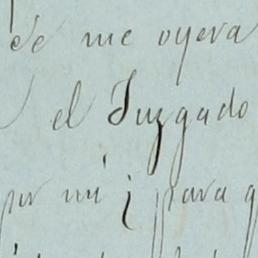 de me oyera
el Juzgado
por mi i para q